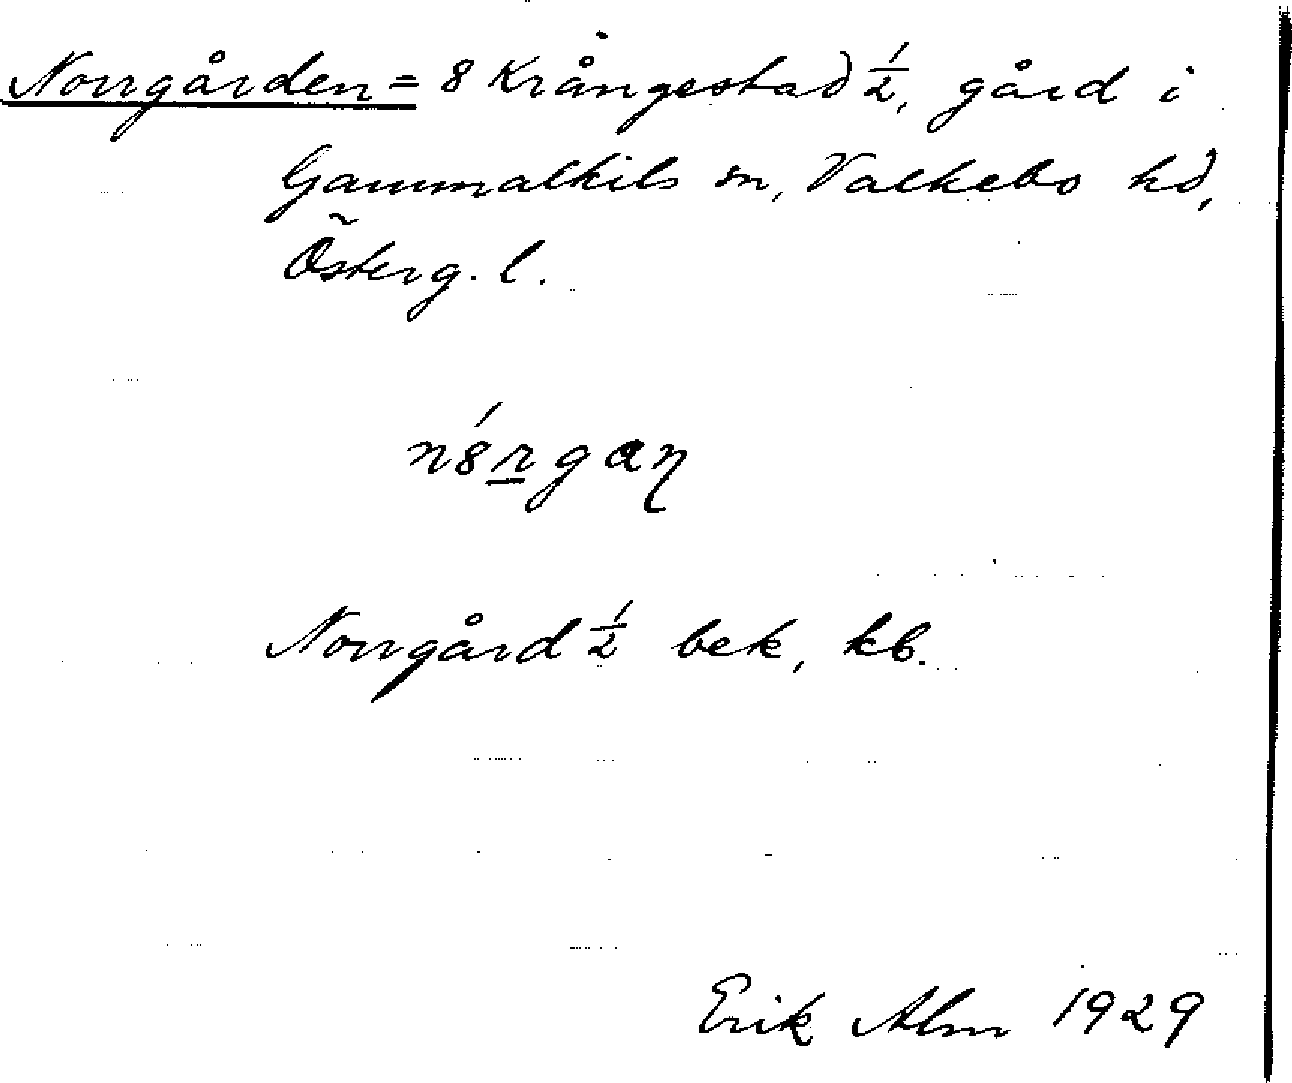 Norrgården = 8 Krångestad ½, gård i
Gammalkils sn, Valkebo hd,
Österg. l.
n8́rgaɳ
Norrgård ½ bek, kb.
Erik Alm 1929